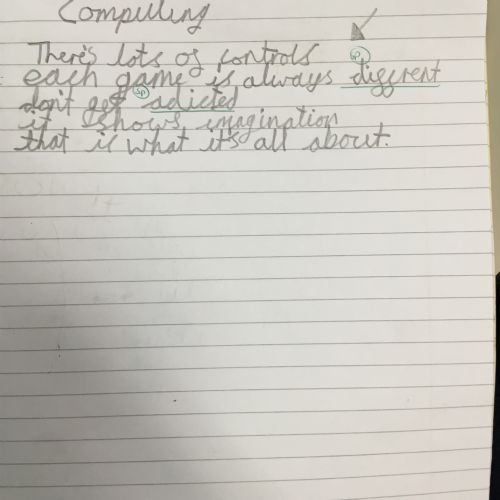 Computing
There's lots of controls
sp
each game is always diffrent
sp
don't get adicted
it shows imagination
that is what it's all about.